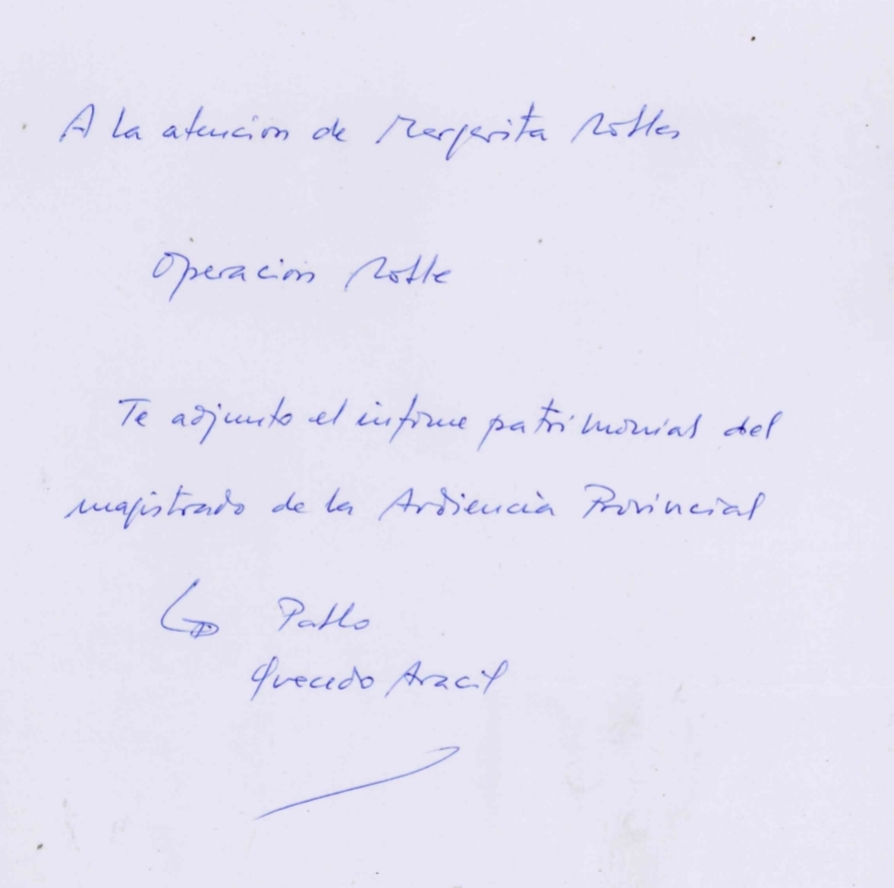 A la atencion de Margarita Robles
Operacion Roble
Te adjunto el informe patrimonial del
magistrado de la Audiencia Provincial
↳ Pablo
Quecedo Aracil